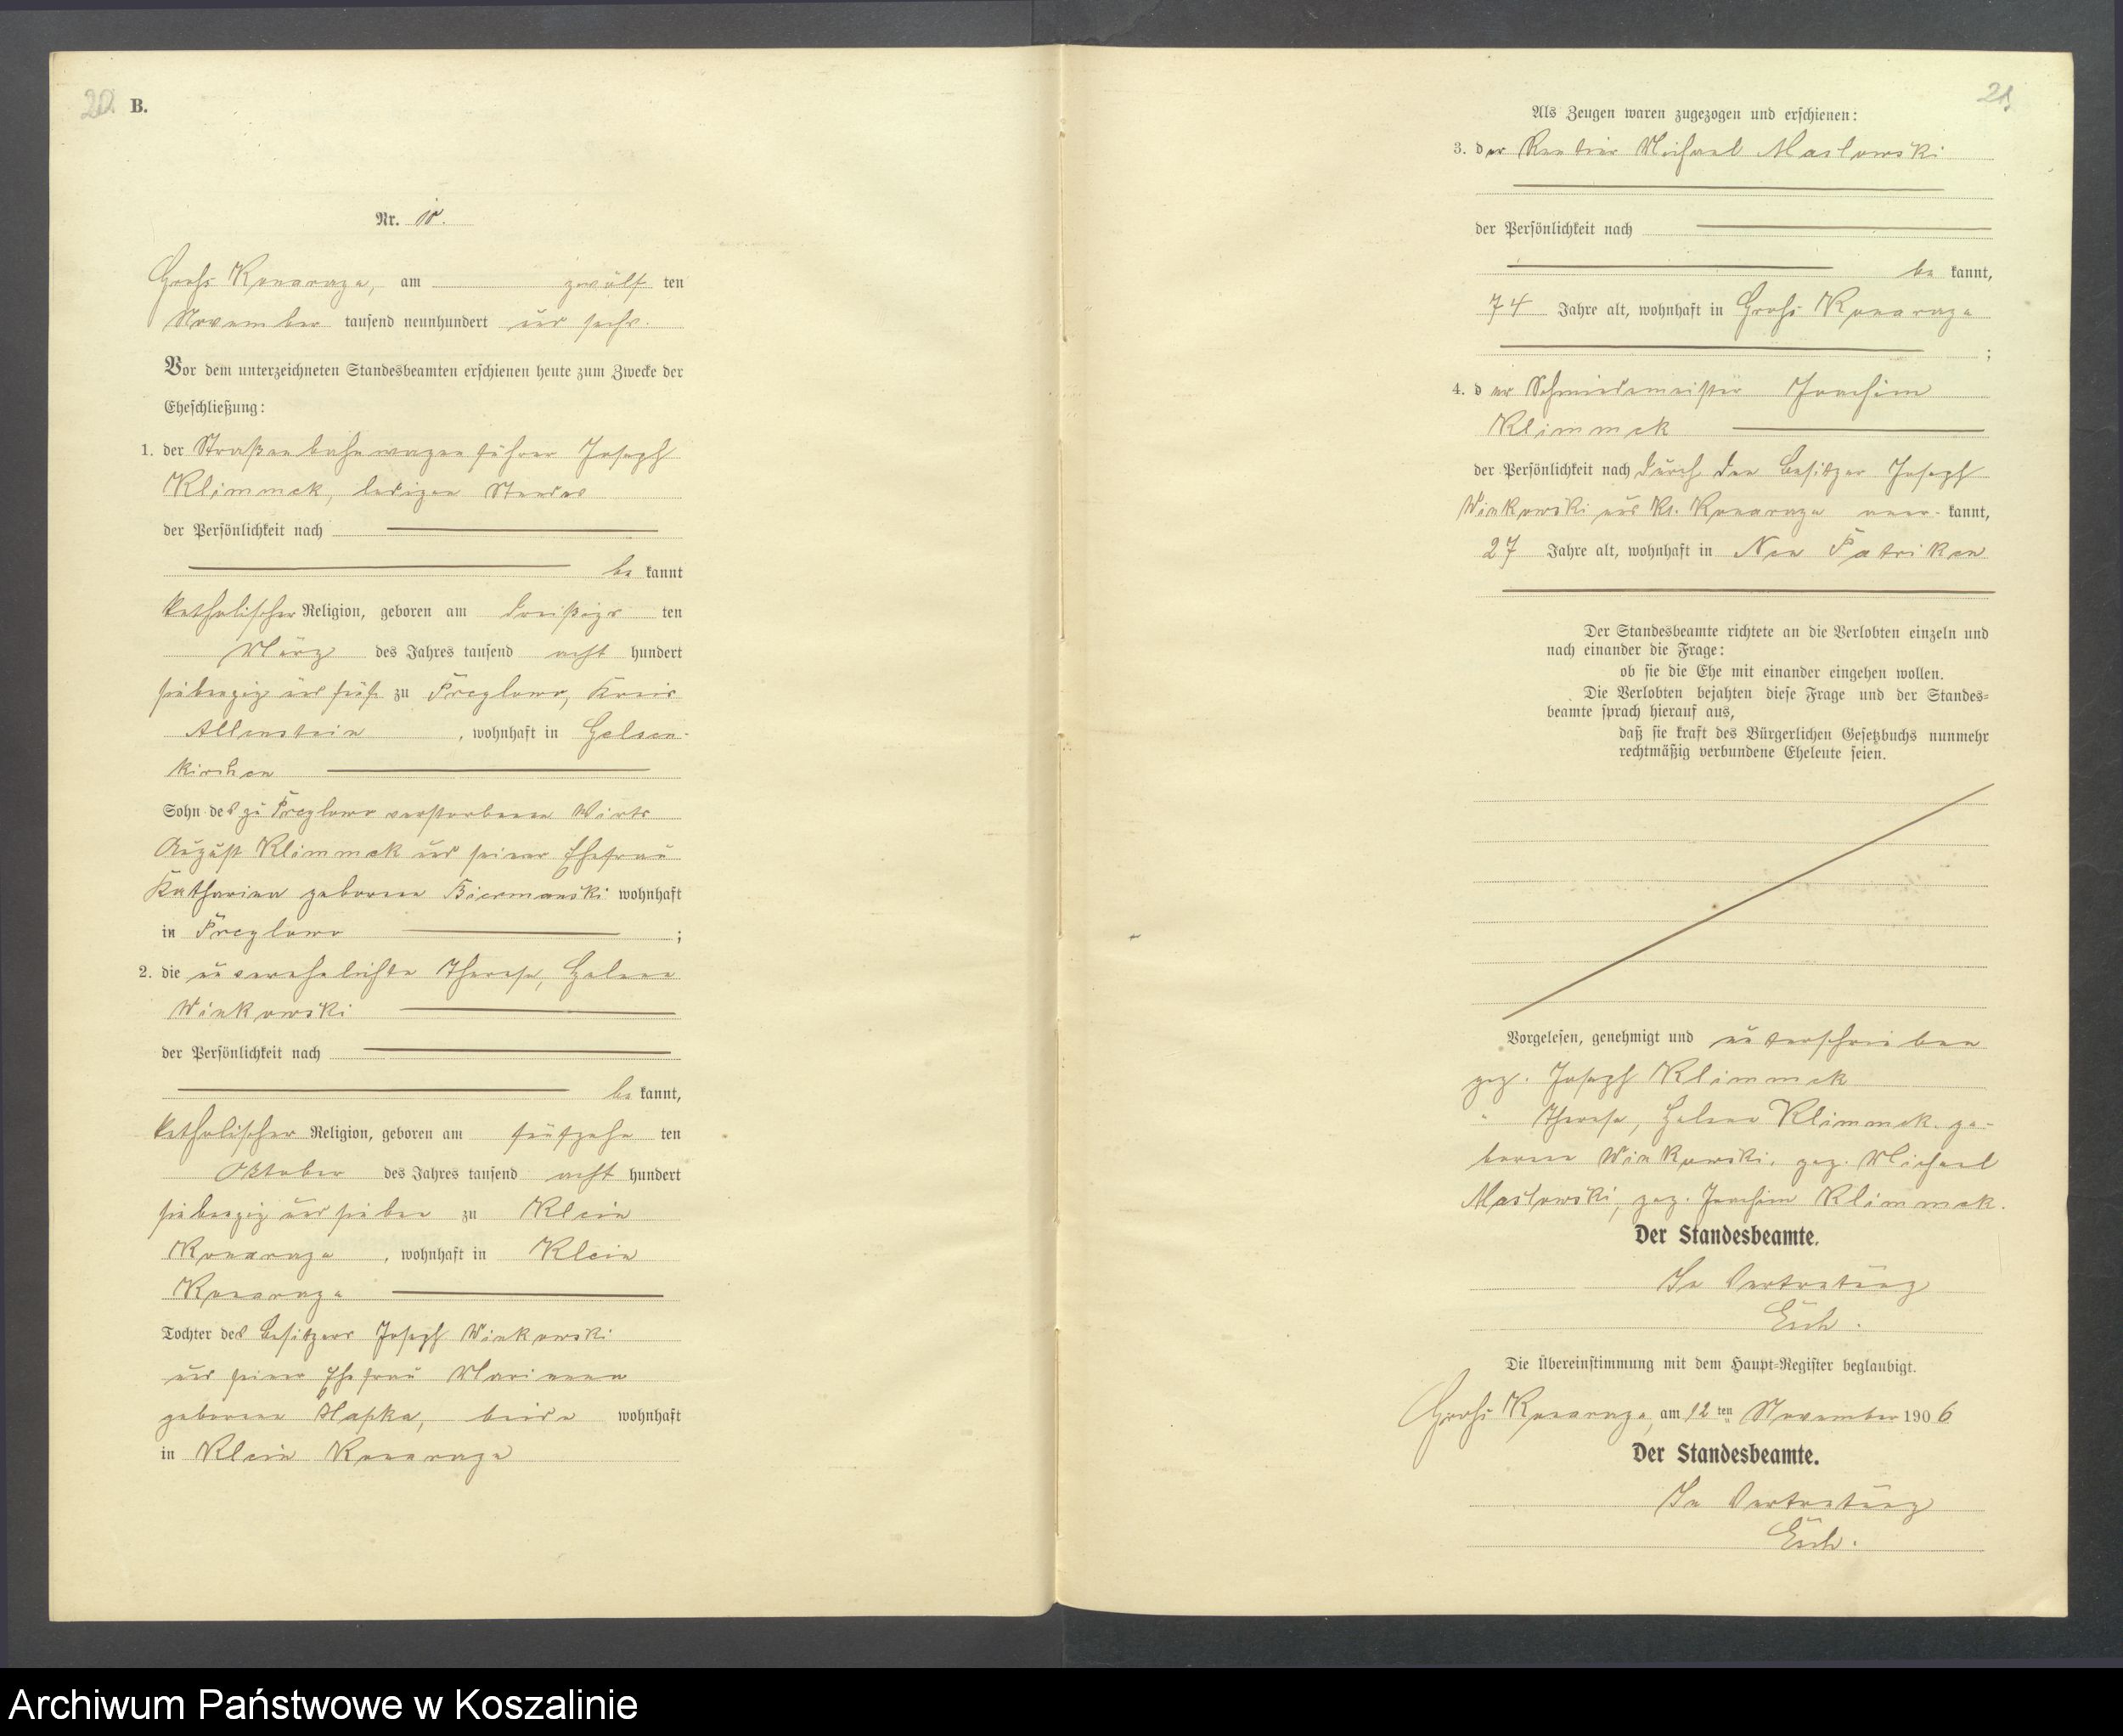 20. B.
Nr. 10.
Groß Konarczyn, am zwölf ten
November tausend neunhundert und sechs.
Vor dem unterzeichneten Standesbeamten erschienen heute zum Zwecke der
Eheschließung:
1. der Straßenbahnwagenführer Joseph
Klimmek, ledigen Standes
der Persönlichkeit nach
be kannt
katholischer Religion, geboren am dreißigs ten
März des Jahres tausend acht hundert
siebenzig und fünf zu Preylowo, Kreis
Allenstein, wohnhaft in Gelsen-
kirchen
Sohn des zu Preylowo verstorbenen Wirts
August Klimmek und seiner Ehefrau
Katharina geborene Biermanski wohnhaft
in Preylowo ;
2. die unverehelichte Therese, Helene
Winkowski
der Persönlichkeit nach
be kannt,
katholischer Religion, geboren am fünfzehn ten
Oktober des Jahres tausend acht hundert
siebenzig und sieben zu Klein
, wohnhaft in Klein
Tochter des Besitzers Joseph Winkowski
und seiner Ehefrau Marianna
geborene beide wohnhaft
in Klein
21.
Als Zeugen waren zugezogen und erschienen:
3. der Rentier Michael Maslowski
der Persönlichkeit nach
be kannt,
74 Jahre alt, wohnhaft in Groß
;
4. d er Schmiedemeister Joachim
Klimmek
der Persönlichkeit nach durch den Besitzer Joseph
Winkowski aus Kl. aner- kannt,
27 Jahre alt, wohnhaft in Neu Patriken
Der Standesbeamte richtete an die Verlobten einzeln und
nach einander die Frage:
ob sie die Ehe mit einander eingehen wollen.
Die Verlobten bejahten diese Frage und der Standes=
beamte sprach hierauf aus,
daß sie kraft des Bürgerlichen Gesetzbuchs nunmehr
rechtmäßig verbundene Eheleute seien.
Vorgelesen, genehmigt und unterschrieben
gez. Joseph Klimmek
" Therese, Helene Klimmek ge-
borene Winkowski, gez. Michael
Maslowski, gez. Joachim Klimmek.
Der Standesbeamte.
In Vertretung
Esch.
Die Übereinstimmung mit dem Haupt=Register beglaubigt.
Groß am 12 ten November 1906
Der Standesbeamte.
In Vertretung
Esch.
Archiwum Państwowe w Koszalinie